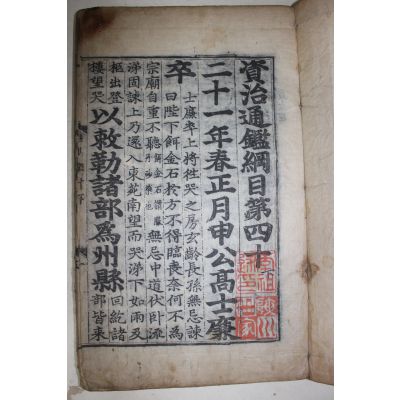 資治通鑑綱目第四十
二十一年春正月申公高士廉
卒
士廉卒上將往哭之房玄齡長孫無忌諫
曰陛下餌金石於方不得臨喪奈何不為
宗廟自重不聽無忌中道伏臥流
涕固諫上乃還入東苑南望而哭涕下如雨及
柩出登
樓望哭
以敕勒諸部爲州縣
回紇諸
部皆來